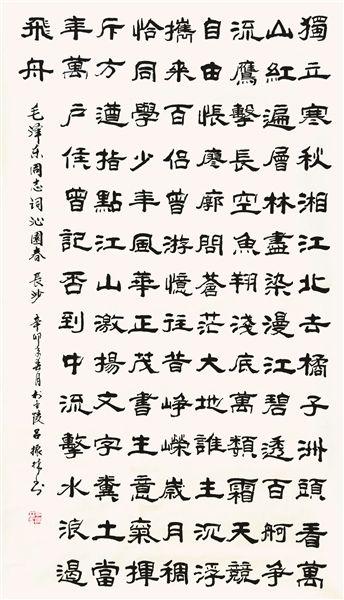 獨立寒秋湘江北去橘子洲頭看萬
山紅遍層林盡染漫江碧透百舸争
流鷹擊長空魚翔淺底萬類霜天競
自由悵廖廓問蒼茫大地誰主沉浮
攜來百侣曾游憶往昔崢嶸歲月稠
恰同學少年風華正茂書生意氣揮
斥方遒指點江山激揚文字糞土當
年萬户侯曾記否到中流擊水浪遏
飛舟
毛澤东同志詞沁園春 長沙 辛卯年月於陵吕振书